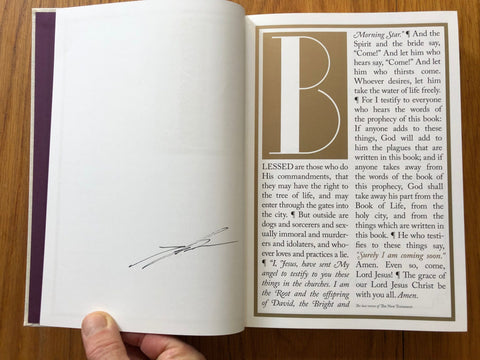 BLESSED are those who do
His commandments, that
they may have the right to
the tree of life, and may
enter through the gates into
the city. ¶ But outside are
dogs and sorcerers and sex-
ually immoral and murder-
ers and idolaters, and who-
ever loves and practices a lie.
¶ “I, Jesus, have sent My
angel to testify to you these
things in the churches. I am
the Root and the offspring
of David, the Bright and
Morning Star.” ¶ And the
Spirit and the bride say,
“Come!” And let him who
hears say, “Come!” And let
him who thirsts come.
Whoever desires, let him
take the water of life freely.
¶ For I testify to everyone
who hears the words of
the prophecy of this book:
If anyone adds to these
things, God will add to
him the plagues that are
written in this book; and if
anyone takes away from
the words of the book of
this prophecy, God shall
take away his part from the
Book of Life, from the
holy city, and from the
things which are written in
this book. ¶ He who testi-
fies to these things say,
“Surely I am coming soon.”
Amen. Even so, come,
Lord Jesus! ¶ The grace of
our Lord Jesus Christ be
with you all. Amen.
The last verses of The New Testament